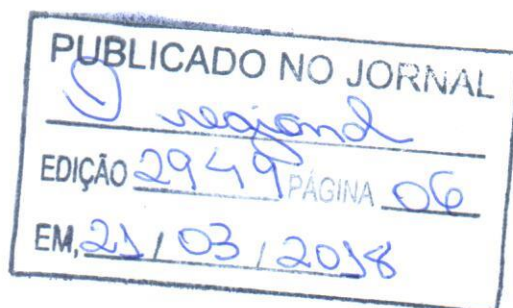 PUBLICADO NO JORNAL
O regional
EDIÇÃO 2949 PÁGINA 06
EM, 21 / 03 / 2018